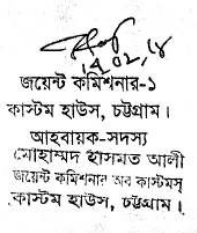 14.02.18
জয়েন্ট কমিশনার-১
কাস্টম হাউস, চট্টগ্রাম।
আহবায়ক-সদস্য
মোহাম্মদ হাসমত আলী
জয়েন্ট কমিশনার অব কাস্টমস্
কাস্টম হাউস, চট্টগ্রাম।